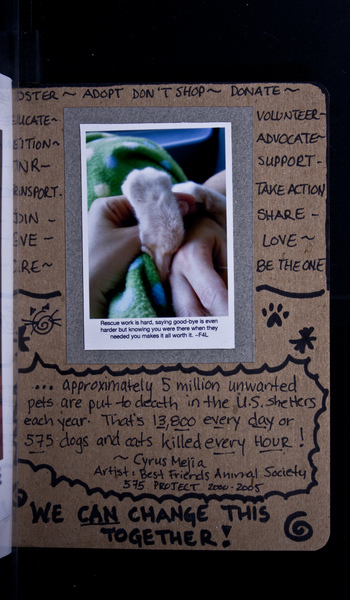 OSTER ~ ADOPT DON'T SHOP ~ DONATE ~
VOLUNTEER~
ADVOCATE~
SUPPORT-
TAKE ACTION
SHARE -
LOVE ~
BE THE ONE
UCATE~
TNR-
RANSPORT.
OIN -
VE -
RE~
Rescue work is hard, saying good-bye is even
harder but knowing you were there when they
needed you makes it all worth it. ~F4L
... approximately 5 million unwanted
pets are put to death in the U.S. shelters
each year. That's 13,800 every day or
575 dogs and cats killed every HOUR!
~ Cyrus Mejia
Artist: Best Friends Animal Society
575 PROJECT 2000-2005
WE CAN CHANGE THIS
TOGETHER!